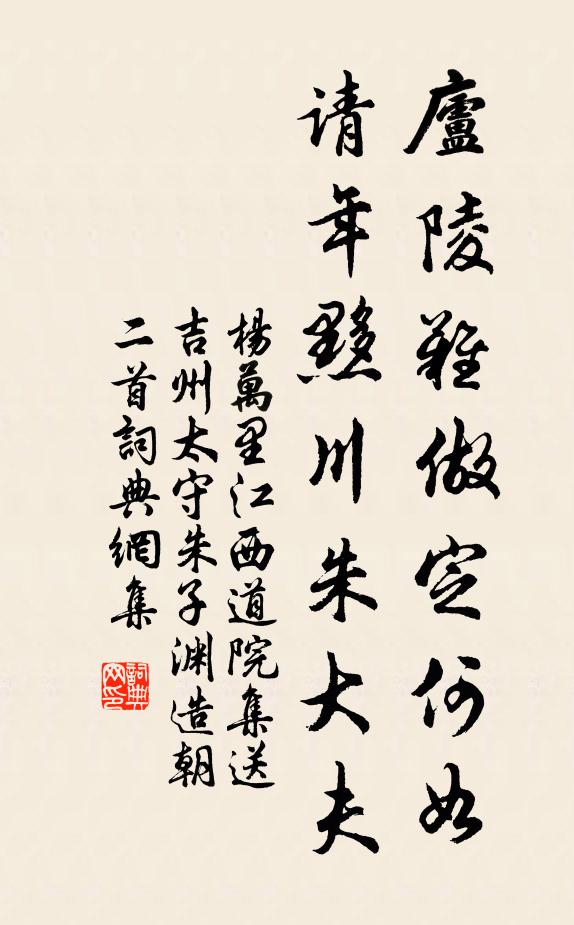 廬陵難做定何如
请年黟川朱大夫
楊萬里江西道院集送
吉州太守朱子渊造朝
二首詞典網集
詞典网印